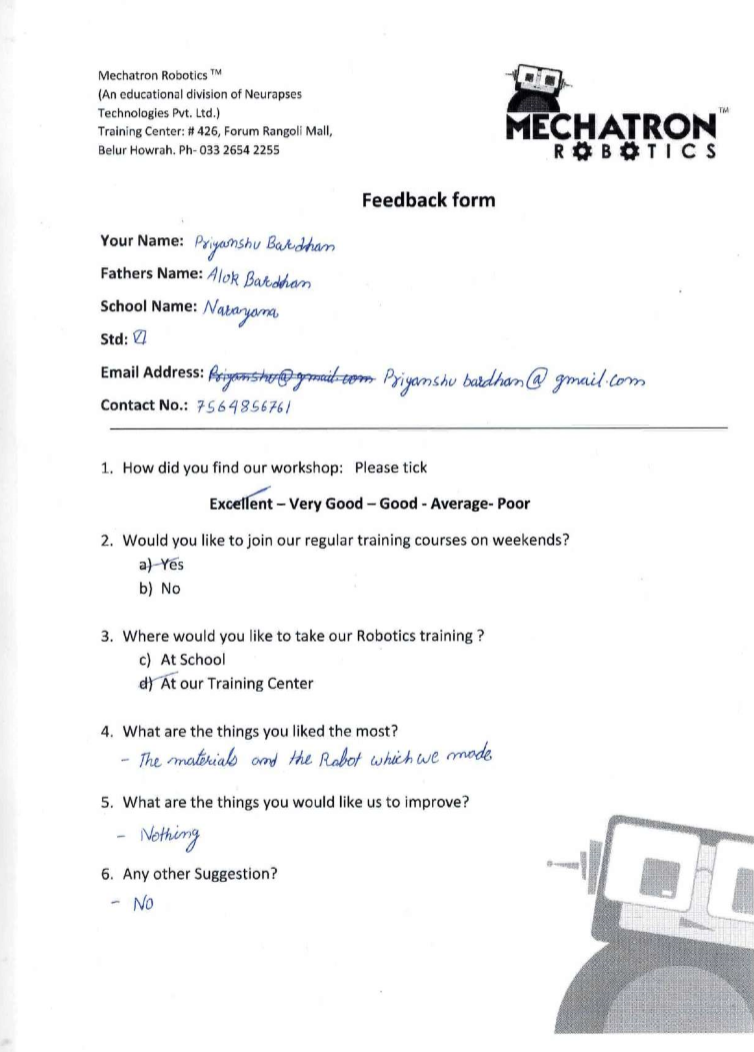 Mechatron Robotics ™
(An educational division of Neurapses
Technologies Pvt. Ltd.)
Training Center: # 426, Forum Rangoli Mall,
Belur Howrah. Ph- 033 2654 2255
MECHATRON™
ROBOTICS
Feedback form
Your Name: Priyanshu Bardhan
Fathers Name: Alok Bardhan
School Name: Narayana
Std: VI
Email Address: Priyanshu@gmail.com Priyanshu bardhan@gmail.com
Contact No.: 7564856761
1. How did you find our workshop: Please tick
Excellent – Very Good – Good - Average- Poor
2. Would you like to join our regular training courses on weekends?
a) Yes
b) No
3. Where would you like to take our Robotics training ?
c) At School
d) At our Training Center
4. What are the things you liked the most?
- The materials and the Robot which we made
5. What are the things you would like us to improve?
- Nothing
6. Any other Suggestion?
- No